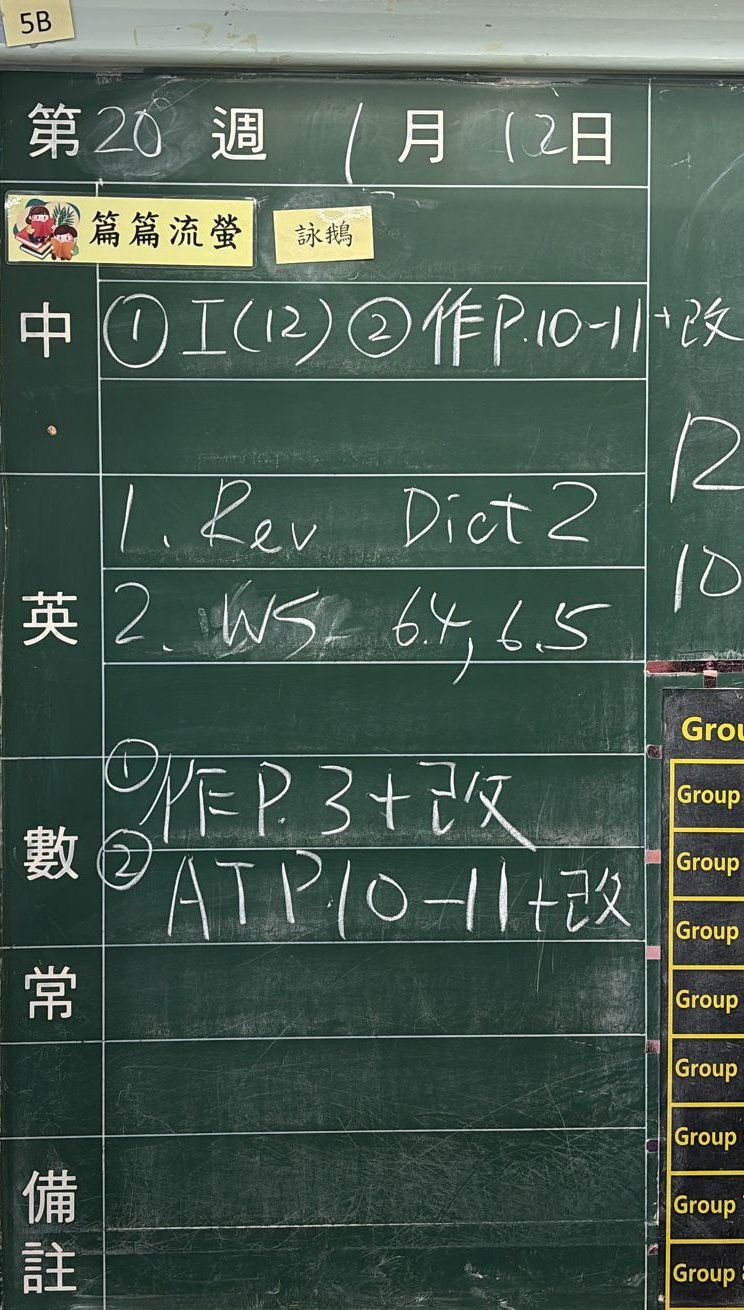 5B
第20週 1月12日
篇篇流螢 詠鵝
中 ① I(12) ② 作P.10-11+改
12
10
英 1. Rev Dict 2
2. WS 6.4, 6.5
數 ① 作P.3+改
② ATP.10-11+改
常
備註
Grou
Group
Group
Group
Group
Group
Group
Group
Group